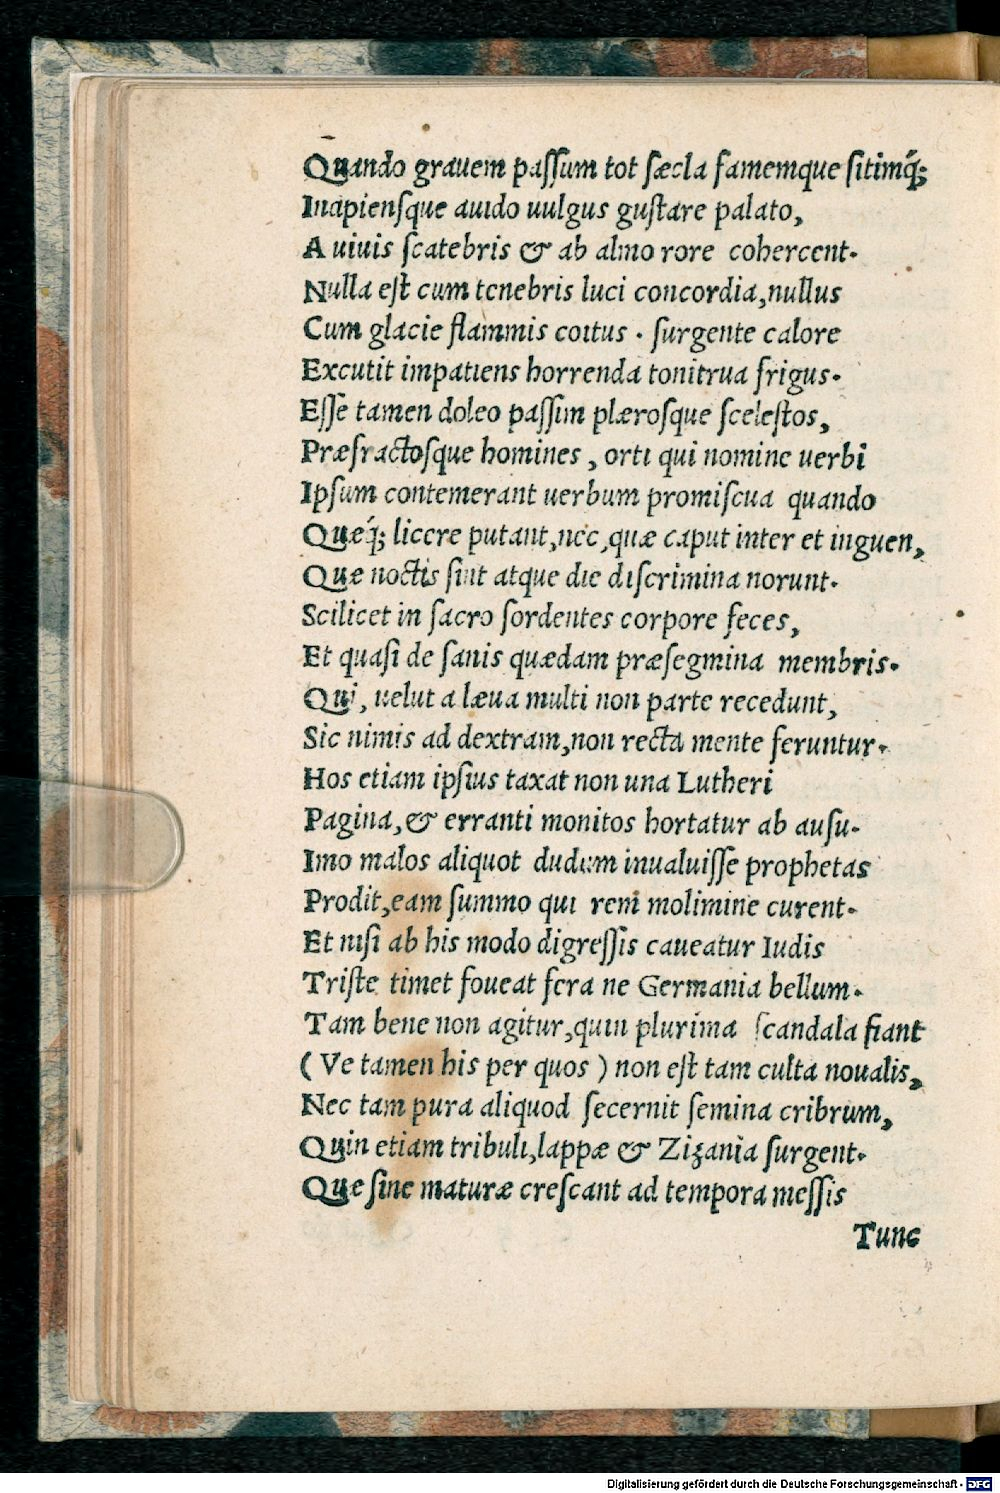 Quando grauem paſſum tot ſæcla famemque ſitimq́;
Inapienſque auido uulgus guſtare palato,
A uiuis ſcatebris & ab almo rore cohercent.
Nulla eſt cum tenebris luci concordia, nullus
Cum glacie flammis coitus . ſurgente calore
Excutit impatiens horrenda tonitrua frigus.
Eſſe tamen doleo paſſim plæroſque ſceleſtos,
Præfractoſque homines, orti qui nomine uerbi
Ipſum contemerant uerbum promiſcua quando
Quæq́; licere putant, nec, quæ caput inter et inguen,
Quæ noctis ſint atque die diſcrimina norunt.
Scilicet in ſacro ſordentes corpore feces,
Et quaſi de ſanis quædam præſegmina membris.
Qui, uelut a læua multi non parte recedunt,
Sic nimis ad dextram, non recta mente feruntur.
Hos etiam ipſius taxat non una Lutheri
Pagina, & erranti monitos hortatur ab auſu.
Imo malos aliquot dudum inualuiſſe prophetas
Prodit, eam ſummo qui rem molimine curent.
Et niſi ab his modo digreſſis caueatur Iudis
Triſte timet foueat fera ne Germania bellum.
Tam bene non agitur, quin plurima ſcandala fiant
( Ve tamen his per quos ) non eſt tam culta noualis,
Nec tam pura aliquod ſecernit ſemina cribrum,
Quin etiam tribuli, lappæ & Zizania ſurgent.
Que ſine maturæ creſcant ad tempora meſſis
Tunc
Digitalisierung gefördert durch die Deutsche Forschungsgemeinschaft - DFG